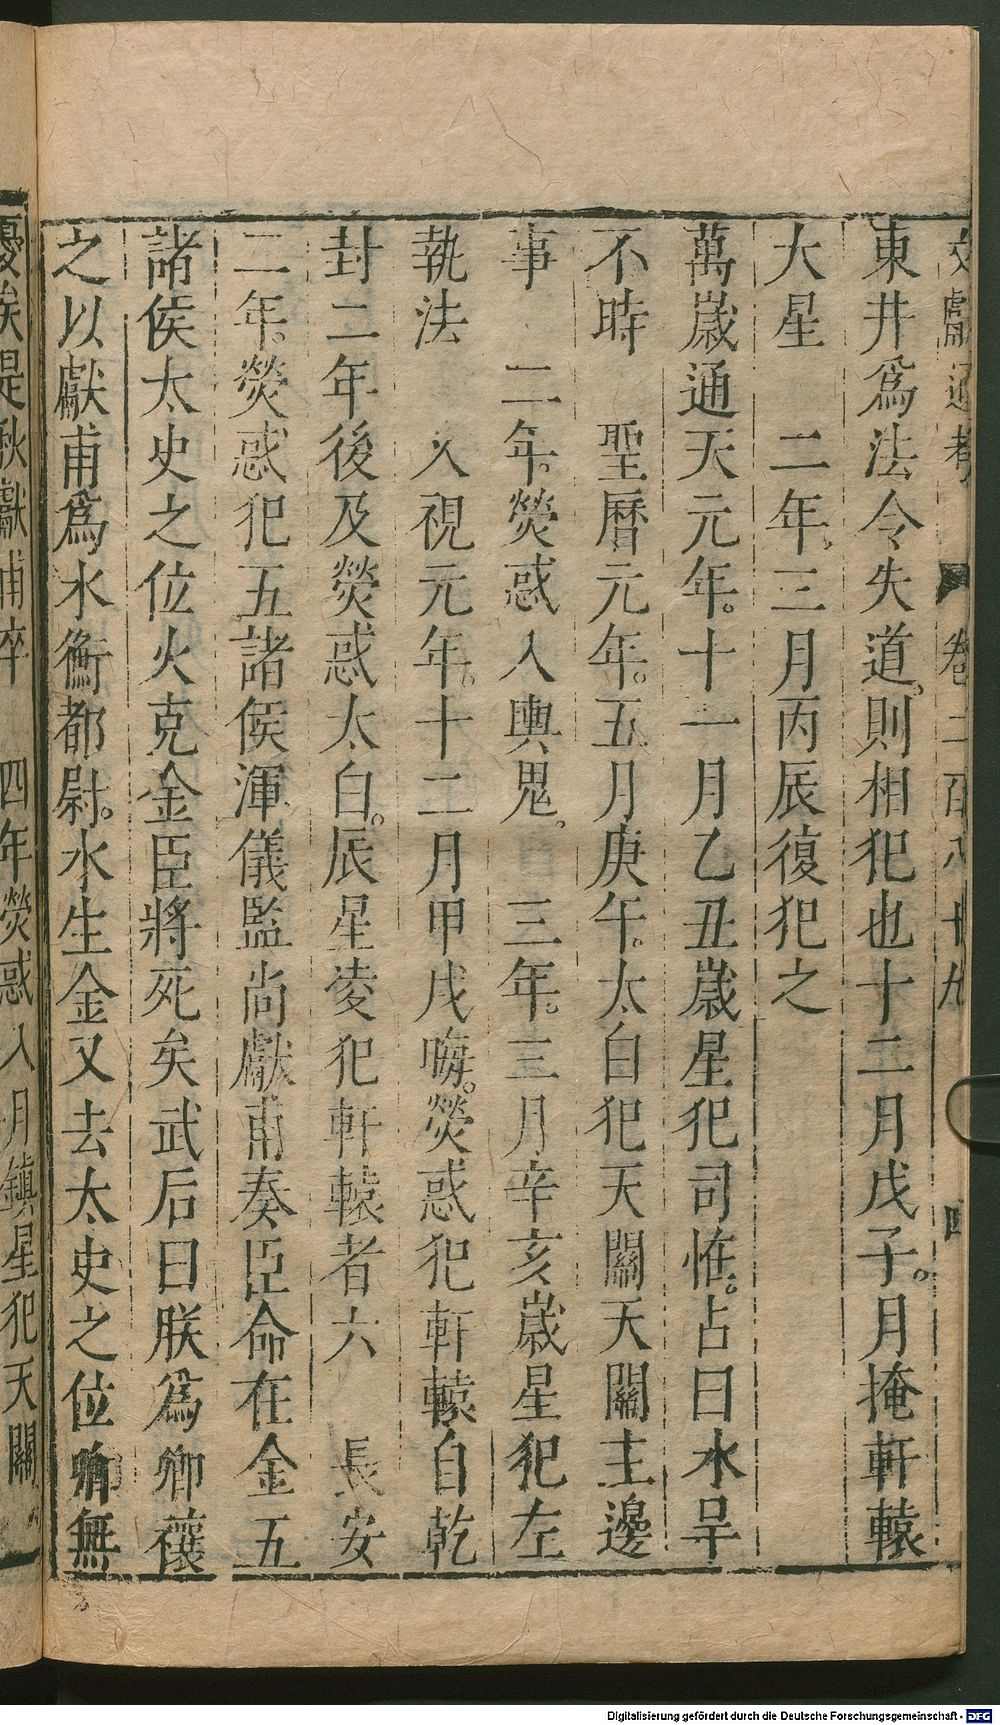 文獻通考 卷二百八十九 四
東井爲法令失道。則相犯也十二月戊子。月掩軒轅
大星 二年。三月丙辰復犯之
萬歲通天元年。十一月乙丑歲星犯司怪。占曰水旱
不時 聖曆元年。五月庚午。太白犯天關天關主邊
事 二年。熒惑入輿鬼。 三年。三月辛亥歲星犯左
執法 久視元年。十二月甲戌晦。熒惑犯軒轅自乾
封二年後及熒惑太白。辰星凌犯軒轅者六 長安
二年。熒惑犯五諸侯渾儀監尚獻甫奏臣命在金五
諸侯太史之位火克金臣將死矣武后曰朕爲卿禳
之以獻甫爲水衡都尉。水生金又去太史之位卿無
憂矣是秋獻甫卒 四年熒惑入月鎮星犯天關
Digitalisierung gefördert durch die Deutsche Forschungsgemeinschaft - DFG